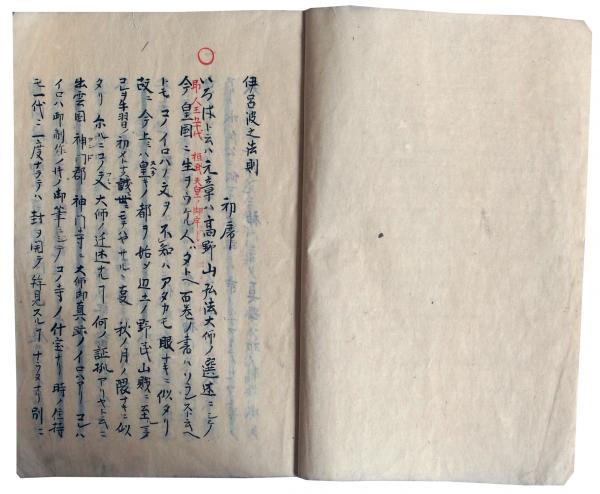 伊呂波之法則
初席
いろはトハ元章ハ高野山弘法大師ノ選述ニシテ
人王五十代 桓武天皇ノ御宇
今皇国ニ生ヲウケル人ハタトヘ百巻ノ書ハソランストイヘ
トモコノイロハノ文ヲ不知ハアタカモ眼ナキニ似タリ
故ニ今上ハ皇都ヲ始メ辺土ノ野民山賎ニ至ル
コレヲ手習ノ初トス 秋ノ月ノ隈ナキニ似
タリ 尓ルニコノ文大師ノ述 何ノ証拠アリヤト云ニ
出雲国神門郡神門寺ニ大師御真跡ノイロハアリコレハ
イロハ御制作ノ時ノ御筆ニシテコノ寺ノ什宝ナリ時ノ住持
モ一代ニ一度ナラテハ封ヲ開テ拝見スル ナラヌナリ別ニ